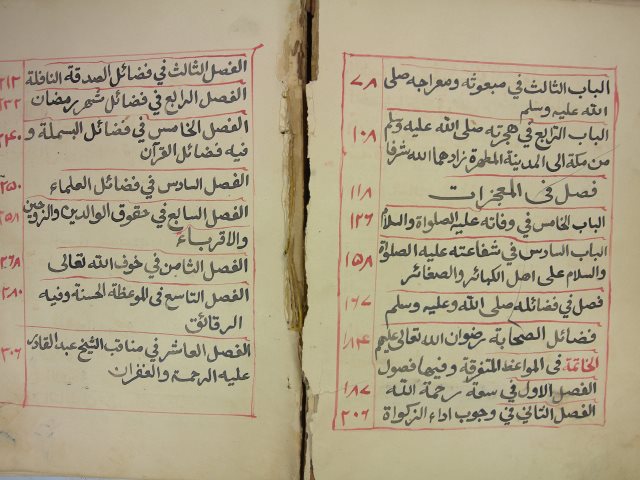 الباب الثالث في مبعوثه ومعراجه صلى ٧٨
الله عليه وسلم
الباب الرابع في هجرته صلى الله عليه وسلم ١٠٨
من مكة الى المدينة المطهرة زادهما الله شرفا
فصل في المعجزات ١١٨
الباب الخامس في وفاته عليه الصلواة والسلام ١٢٦
الباب السادس في شفاعته عليه الصلوة ١٥٨
والسلام على اهل الكبائر والصغائر
فصل في فضائله صلى الله وعليه وسلم ١٦٧
فضائل الصحابة رضوان الله تعالى عليهم ١٨٤
الخاتمة فى المواعظ المتفرقة وفيها فصول
الفصل الاول في سعة رحمة الله ١٨٧
الفصل الثاني في وجوب اداء الزكواة ٢٠٦
الفصل الثالث في فضائل الصدقة النافلة ٢١٣
الفصل الرابع في فضائل شهر رمضان ٢٢٢
الفصل الخامس في فضائل البسملة و ٢٤٠
فيه فضائل القرآن
الفصل السادس في فضائل العلماء ٢٥٠
الفصل السابع في حقوق الوالدين والزوجين ٢٥٨
والاقرباء
الفصل الثامن في خوف الله تعالى ٢٦٨
الفصل التاسع فى الموعظة الحسنة وفيه ٢٨٠
الرقائق
الفصل العاشر في مناقب الشيخ عبد القادر ٣٠٦
عليه الرحمة والغفران